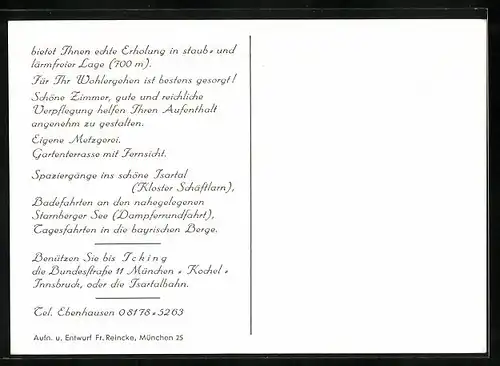 bietet Ihnen echte Erholung in staub- und
lärmfreier Lage (700 m).
Für Ihr Wohlergehen ist bestens gesorgt!
Schöne Zimmer, gute und reichliche
Verpflegung helfen Ihren Aufenthalt
angenehm zu gestalten.
Eigene Metzgerei.
Gartenterrasse mit Fernsicht.
Spaziergänge ins schöne Isartal
(Kloster Schäftlarn),
Badefahrten an den nahegelegenen
Starnberger See (Dampferrundfahrt),
Tagesfahrten in die bayrischen Berge.
Benützen Sie bis Icking
die Bundesstraße 11 München - Kochel -
Innsbruck, oder die Isartalbahn.
Tel. Ebenhausen 08178-5263
Aufn. u. Entwurf Fr. Reincke, München 25